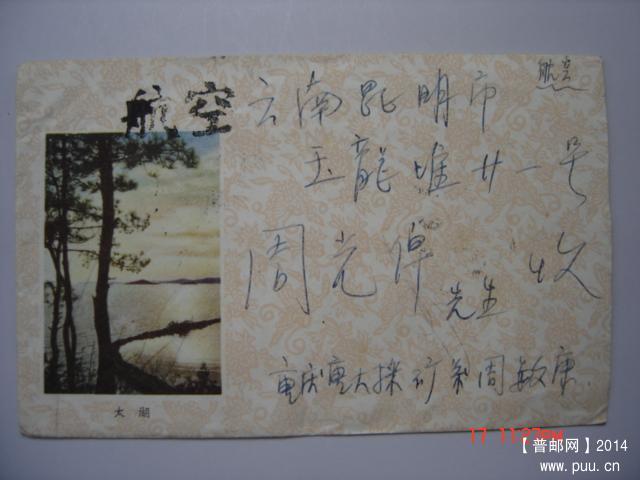 航空
航空
云南昆明市
玉龍堆廿一号
周光倬
先生
收
太湖
重庆重大採矿系周敏康
17 11:27PM
【普邮网】2014
www.puu.cn